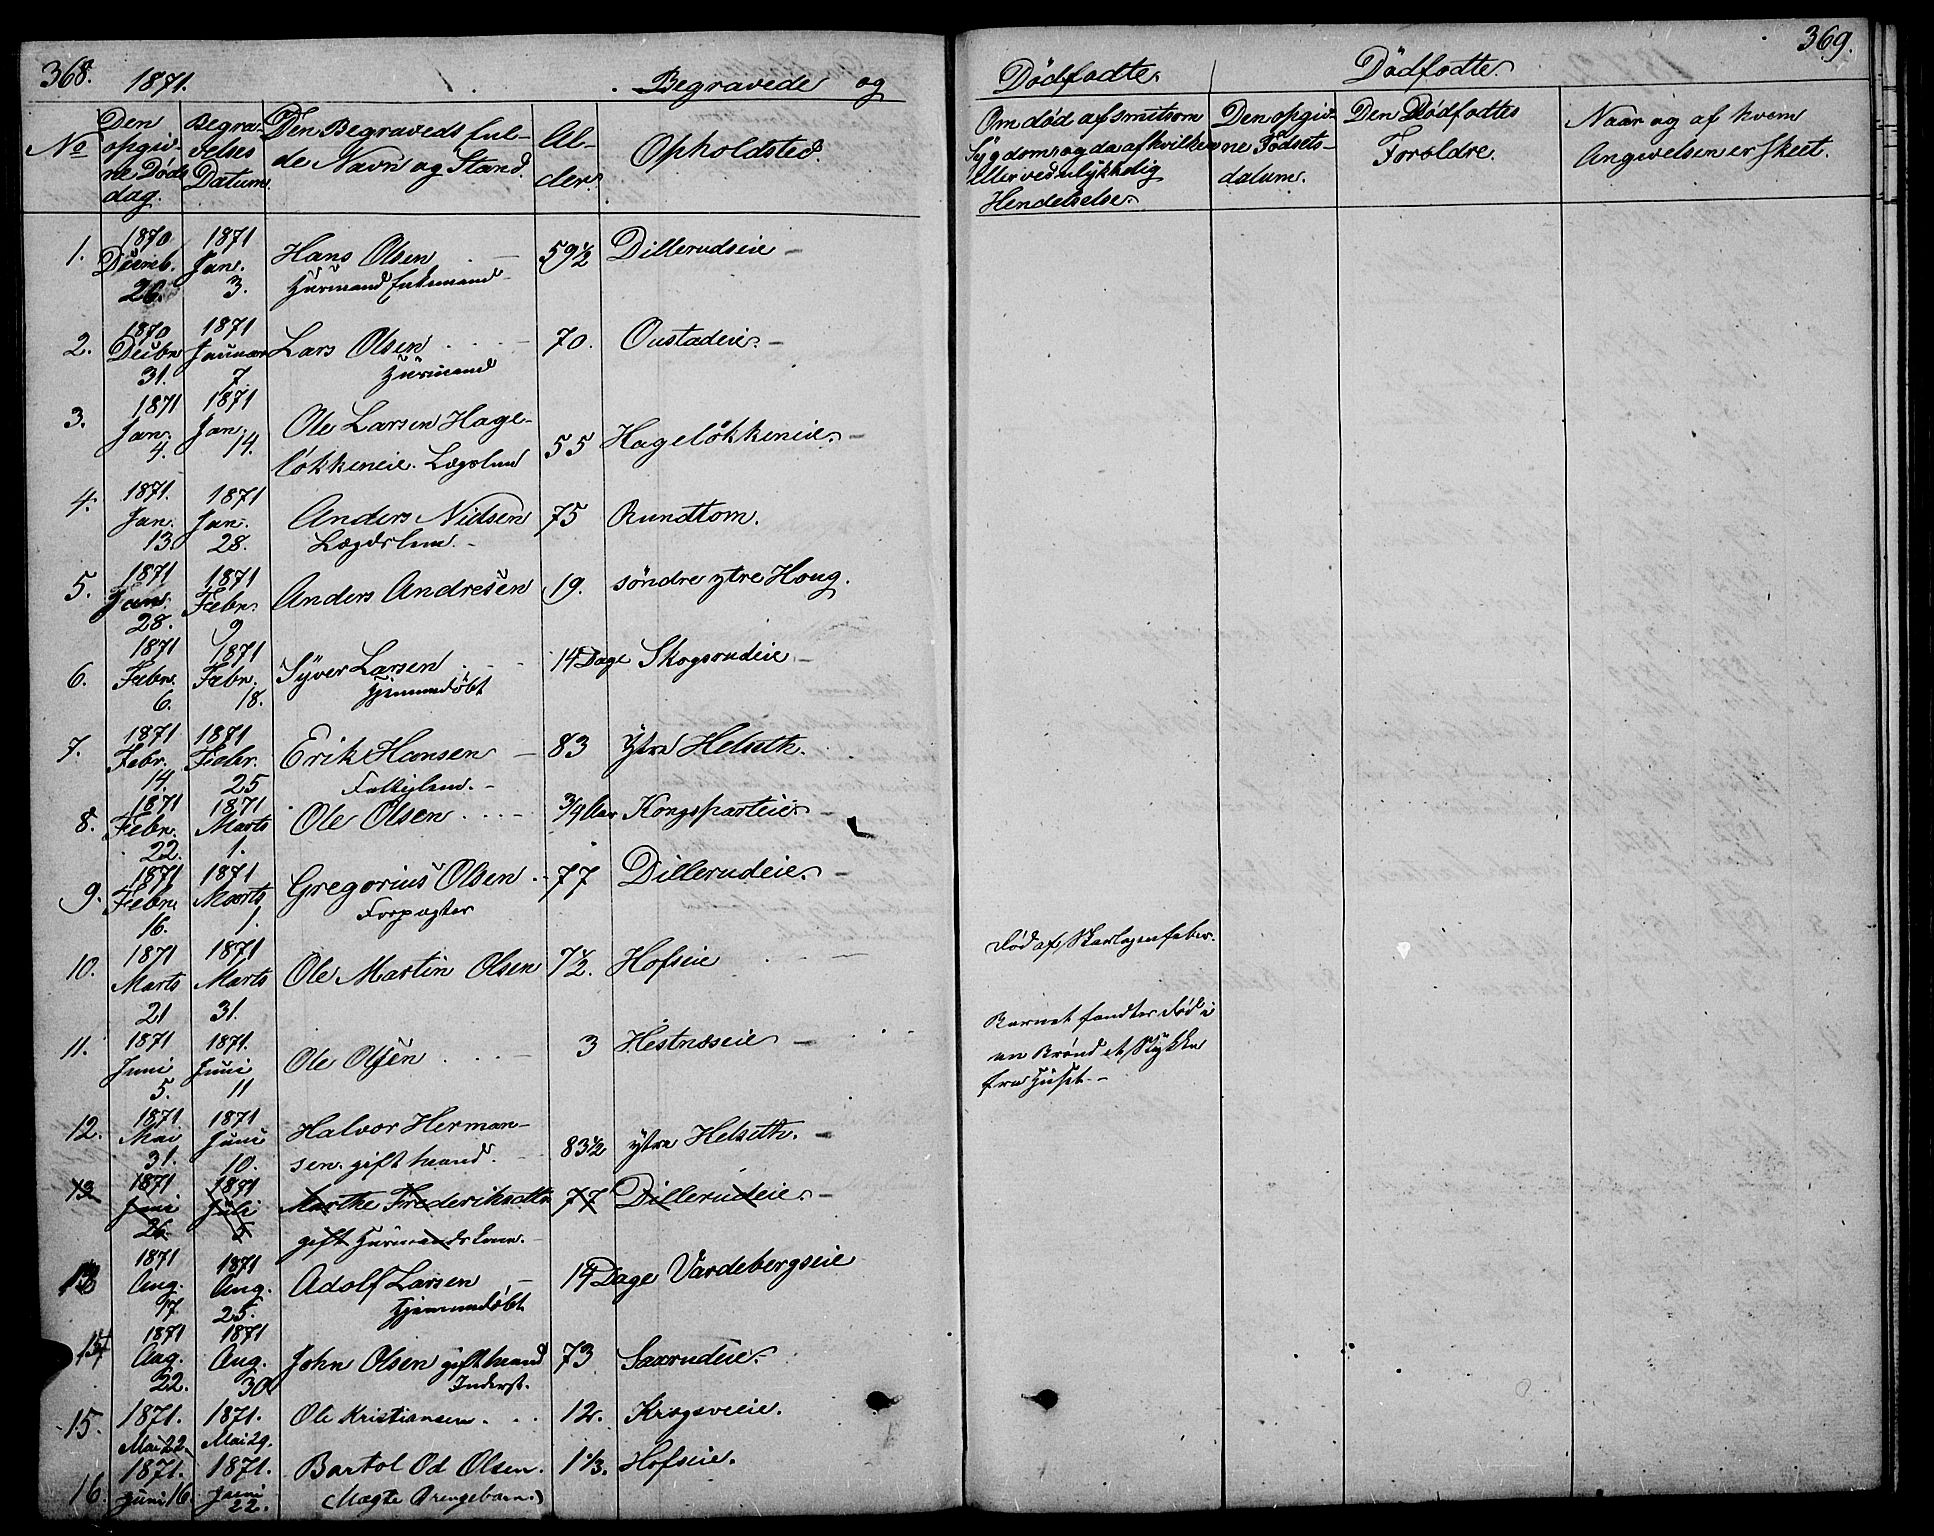 368.
1871.
Begravede og
Dödfödte.
Dödfödte.
369.
No
Den opgiv-
ne Döds
dag.
Begra-
velses
Datum
Den Begraveds ful-
de Navn og Stand.
Al-
der.
Opholdsted.
Om död af smitsom
Sygdom, og da af hvilken
eller ved ulykkelig
Hendelse.
Den opgiv-
ne Födsels-
datum.
Den Dödfödtes
Foroldre.
Naar og af hvem
Angivelsen er skeet.
1. 1870 1871
Decmb. Jan. Hans Olsen 59 1/2 Dillerudseie
26. 3. Huusmand Enkemand
2. 1870 1871
Decbr Januar Lars Olsen 70. Oustadeie.
31. 7. Huusmand
3. 1871 1871
Jan. Jan. Ole Larsen Hage-
4. 14. lökkeneie. Lægslem 55 Hagelökkeneie.
4. 1871. 1871
Jan. Jan. Anders Nielsen 75 Rundtom.
13. 28. Lægdslem.
5. 1871 1871
Jan. Febr. Anders Andresen 19. söndre ytre Houg.
28. 9
6. 1871 1871
Febr. Febr. Syver Larsen 14 Dage Skogsrudeie
6. 18. Hjemmedöbt
7. 1871 1871
Febr. Febr. Erik Hansen 83 Ytre Helseth.
14. 25 Fattiglem.
8. 1871 1871
Febr. Marts Ole Olsen 3/4 Aar Kongsparteie
22. 1.
9. 1871 1871
Febr. Marts Gregorius Olsen 77 Dillerudeie.
16. 1. Forpagter
10. 1871 1871
Marts Marts Ole Martin Olsen 7 1/2. Hofseie
21 31.
Död af Skarlagensfeber.
11. 1871 1871.
Juni Juni Ole Olsen 3 Hestnæseie
5. 11
Barnet fandtes död i
en Brönd et Stykke
fra Huset.
12. 1871. 1871
Mai Juni Halvor Herman-
31. 10. sen. gift mand. 83 1/2 ytre Helseth.
13 1871 1871
Juni Juli Marthe Frederiksdtter 77 Dillerudeie.
26. 5 gift Huusmandskone.
13 1871 1871
Aug. Aug. Adolf Larsen 14 Dage Vardebergseie
17. 25. Hjemmedöbt
14 1871 1871
Aug. Aug. John Olsen gift mand 73 Saxrudeie.
22. 30 Inderst.
15. 1871. 1871. Ole Kristiansen. 12. Krogsveeie.
Mai 22. Mai 29.
1871. 1871. Bartol Od Olsen. 1 1/3. Hofseie.
16. Juni 16. Juni 22. (Uægte Drengebarn.)